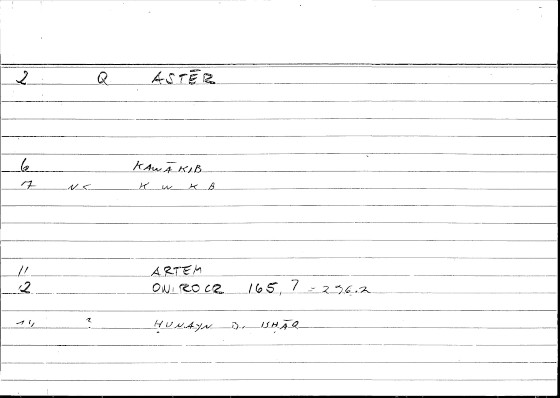 2 Q ASTĒR
6 KAWĀKIB
7 NC K W K B
11 ARTEM
12 ONIROCR 165, 7 = 296.2
14 ? ḤUNAYN B. ISḤĀQ